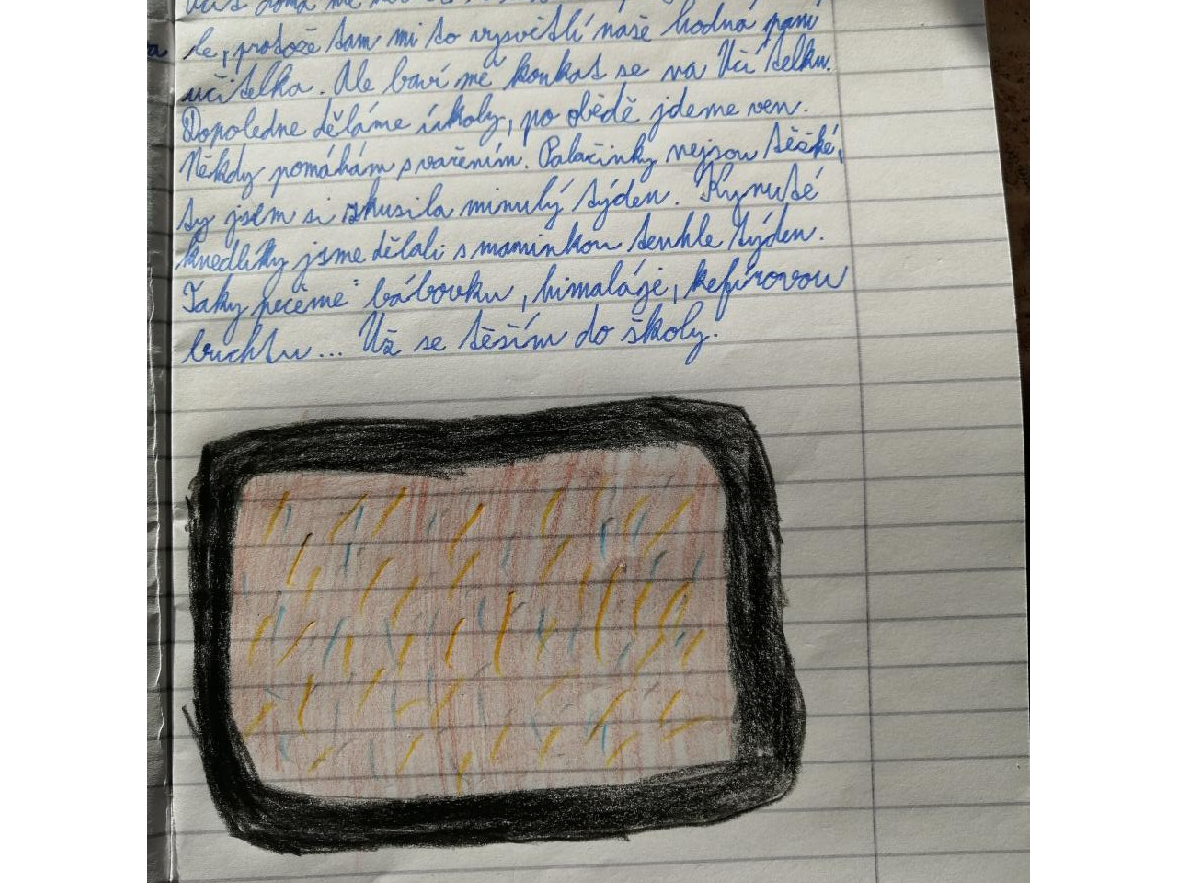 le, protože tam mi to vysvětlí naše hodná paní
učitelka. Ale baví mě koukat se na Učí Telku.
Dopoledne děláme úkoly, po obědě jdeme ven.
Někdy pomáhám s vařením. Palačinky nejsou těžké,
ty jsem si zkusila minulý týden. Kynuté
knedlíky jsme dělali s maminkou tenhle týden.
Taky pečeme: bábovku, himaláje, kefírovou
buchtu... Už se těším do školy.